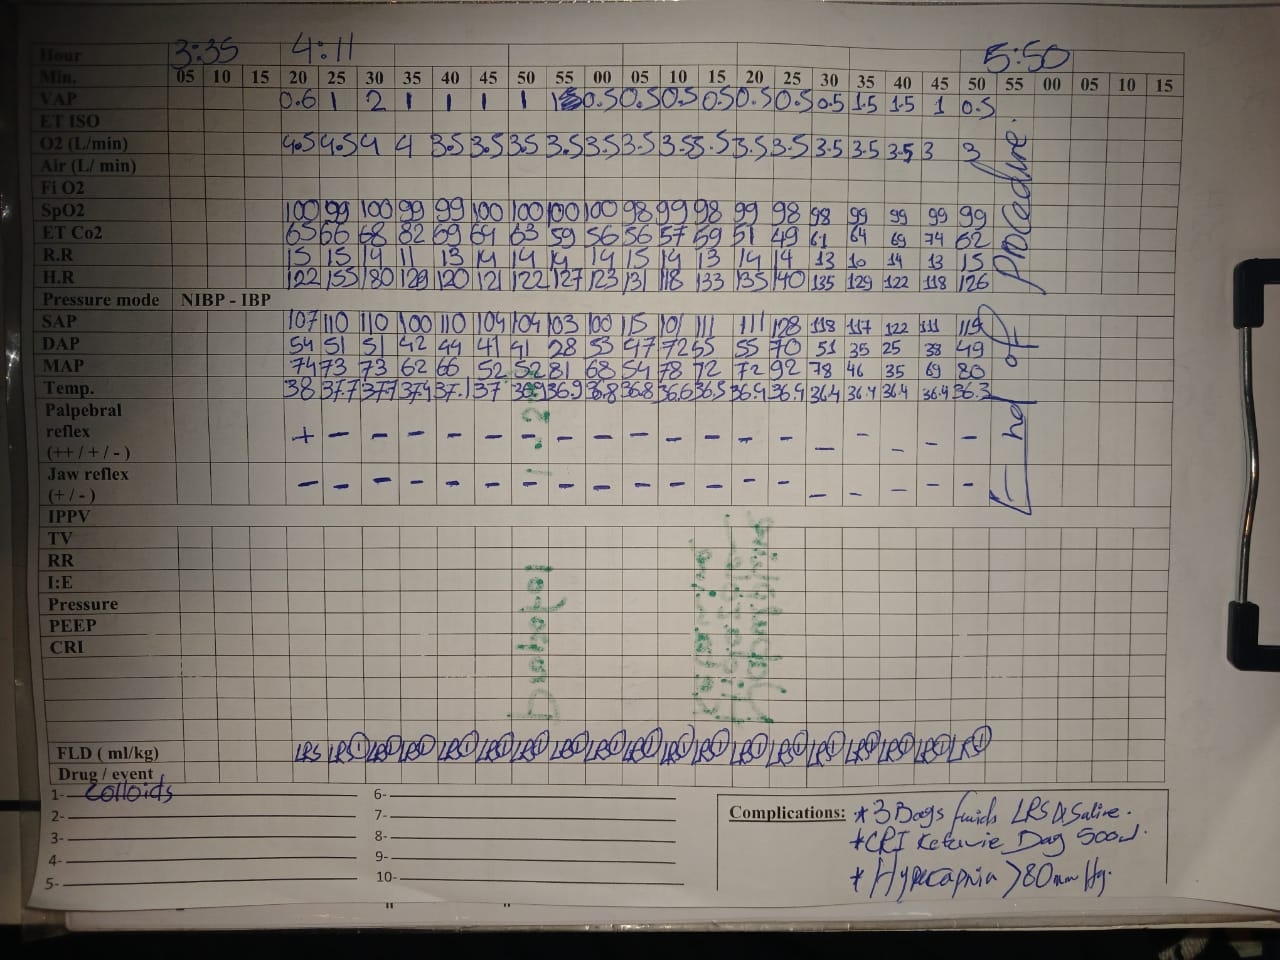 Hour 3:35 4:11 5:50
Min. 05 10 15 20 25 30 35 40 45 50 55 00 05 10 15 20 25 30 35 40 45 50 55 00 05 10 15
VAP 0.6 1 2 1 1 1 1 0.5 0.5 0.5 0.5 0.5 0.5 0.5 1.5 1.5 1 0.5
ET ISO
O2 (L/min) 4.5 4.5 4 4 3.5 3.5 3.5 3.5 3.5 3.5 3.5 3.5 3.5 3.5 3.5 3.5 3 3
Air (L/ min)
Fi O2
SpO2 100 99 100 99 99 100 100 100 100 98 99 98 99 98 98 99 99 99 99
ET Co2 65 66 68 82 69 64 63 59 56 56 57 59 51 49 61 64 69 74 62
R.R 15 15 19 11 13 14 14 14 14 15 14 13 14 14 13 10 14 13 15
H.R 122 155 180 129 120 121 122 127 123 131 118 133 135 140 135 129 122 118 126
Pressure mode NIBP - IBP
SAP 107 110 110 100 110 104 104 103 100 115 101 111 111 128 118 117 122 111 119
DAP 54 51 51 42 44 41 41 28 53 47 72 55 55 70 51 35 25 38 49
MAP 74 73 73 62 66 52 52 81 68 54 78 72 72 92 78 46 35 69 80
Temp. 38 37.7 37.4 37.1 37 36.9 36.9 36.8 36.8 36.6 36.5 36.4 36.4 36.4 36.4 36.4 36.4 36.3
Palpebral
reflex
(++ / + / - ) + - - - - - - - - - - - - - - - - - -
Jaw reflex
(+ / - ) - - - - - - - - - - - - - - - - - - -
End of procedure.
IPPV
TV
RR
I:E
Pressure
PEEP
CRI
FLD ( ml/kg) LRS LRS① LRS① LRS① LRS① LRS① LRS① LRS① LRS① LRS① LRS① LRS① LRS① LRS① LRS① LRS① LRS① LRS① LRS①
Drug / event
1- Colloids
2-
3-
4-
5-
6-
7-
8-
9-
10-
Complications: * 3 Bags fluids LRS & Saline.
* CRI Bag 500
* Hypecapnia >80mmHg.